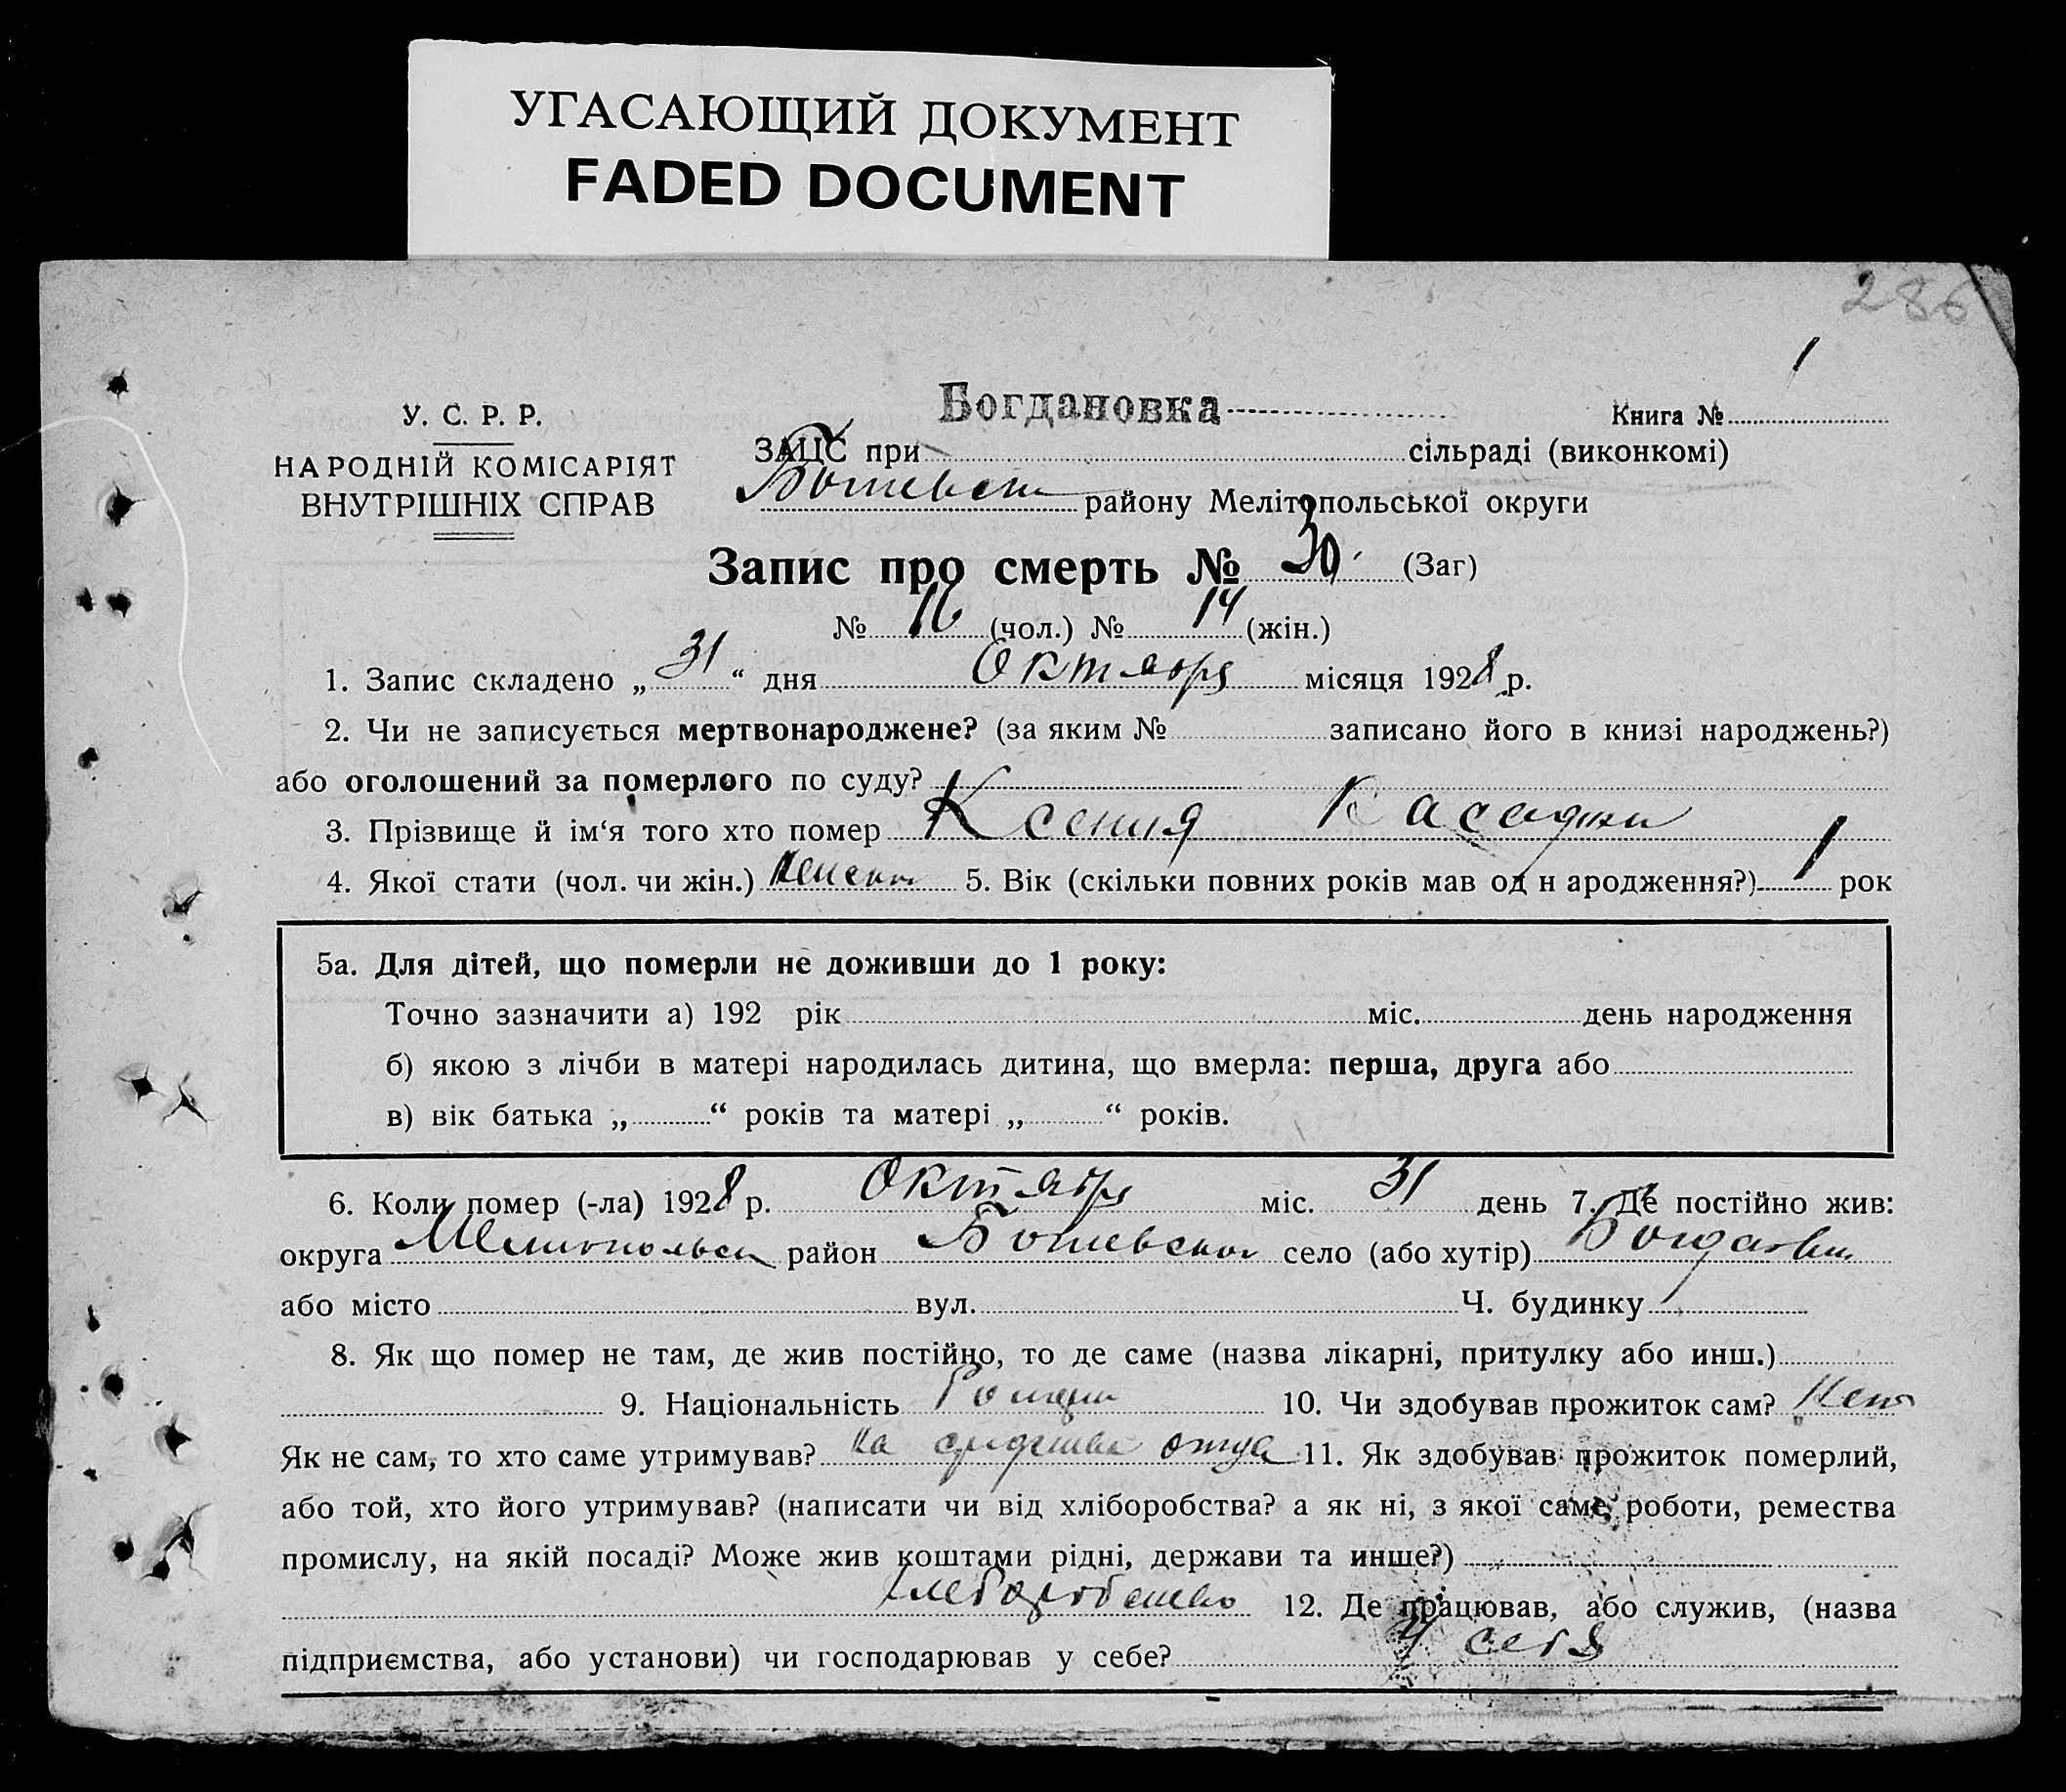 УГАСАЮЩИЙ ДОКУМЕНТ
FADED DOCUMENT
286
1
У. С. Р. Р.
НАРОДНІЙ КОМІСАРІЯТ
ВНУТРІШНІХ СПРАВ
Богдановка
Книга №
ЗАЦС при сільраді (виконкомі)
району Мелітопольської округи
Запис про смерть № 30 (Заг)
№ 16 (чол.) № 14 (жін.)
1. Запис складено „31“ дня Октября місяця 1928 р.
2. Чи не записується мертвонароджене? (за яким № записано його в книзі народжень?)
або оголошений за померлого по суду?
3. Прізвище й ім‘я того хто помер Ксения
4. Якої стати (чол. чи жін.) 5. Вік (скільки повних років мав од н ародження?) 1 рок
5а. Для дітей, що померли не доживши до 1 року:
Точно зазначити а) 192 рік міс. день народження
б) якою з лічби в матері народилась дитина, що вмерла: перша, друга або
в) вік батька „ “ років та матері „ “ років.
6. Коли помер (-ла) 1928 р. Октября міс. 31 день 7. Де постійно жив:
округа район село (або хутір)
або місто вул. Ч. будинку
8. Як що помер не там, де жив постійно, то де саме (назва лікарні, притулку або инш.)
9. Національність 10. Чи здобував прожиток сам?
Як не сам, то хто саме утримував? на средства отца 11. Як здобував прожиток померлий,
або той, хто його утримував? (написати чи від хліборобства? а як ні, з якої саме роботи, ремества
промислу, на якій посаді? Може жив коштами рідні, держави та инше?)
12. Де працював, або служив, (назва
підприємства, або установи) чи господарював у себе? у себя